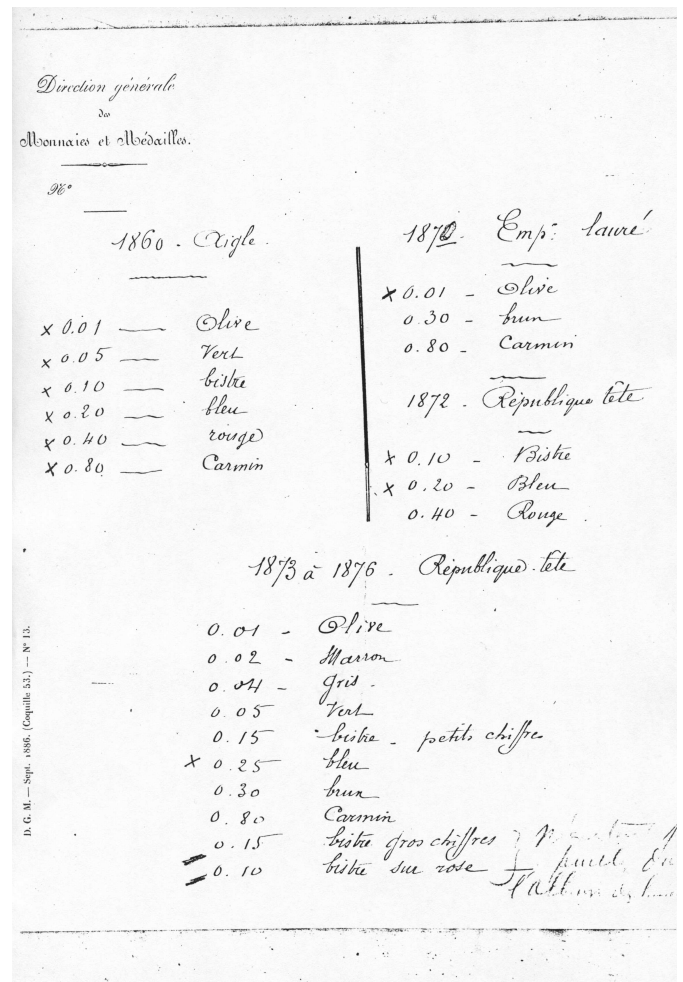 Direction générale
des
Monnaies et Médailles.
N°
1860 - Aigle.
x 0.01 — Olive
x 0.05 — Vert
x 0.10 — bistre
x 0.20 — bleu
x 0.40 — rouge
x 0.80 — Carmin
1870. Emp. lauré
x 0.01 - Olive
0.30 - brun
0.80 - Carmin
1872. République tête
x 0.10 - Bistre
x 0.20 - Bleu
0.40 - Rouge
1873 à 1876. République. tête
0.01 - Olive
0.02 - Marron
0.04 - gris.
0.05 Vert
0.15 bistre - petits chiffres
x 0.25 bleu
0.30 brun
0.80 Carmin
0.15 bistre gros chiffres
0.10 bistre sur rose
l'Album de
D. G. M. — Sept. 1886. (Coquille 53.) — N° 13.